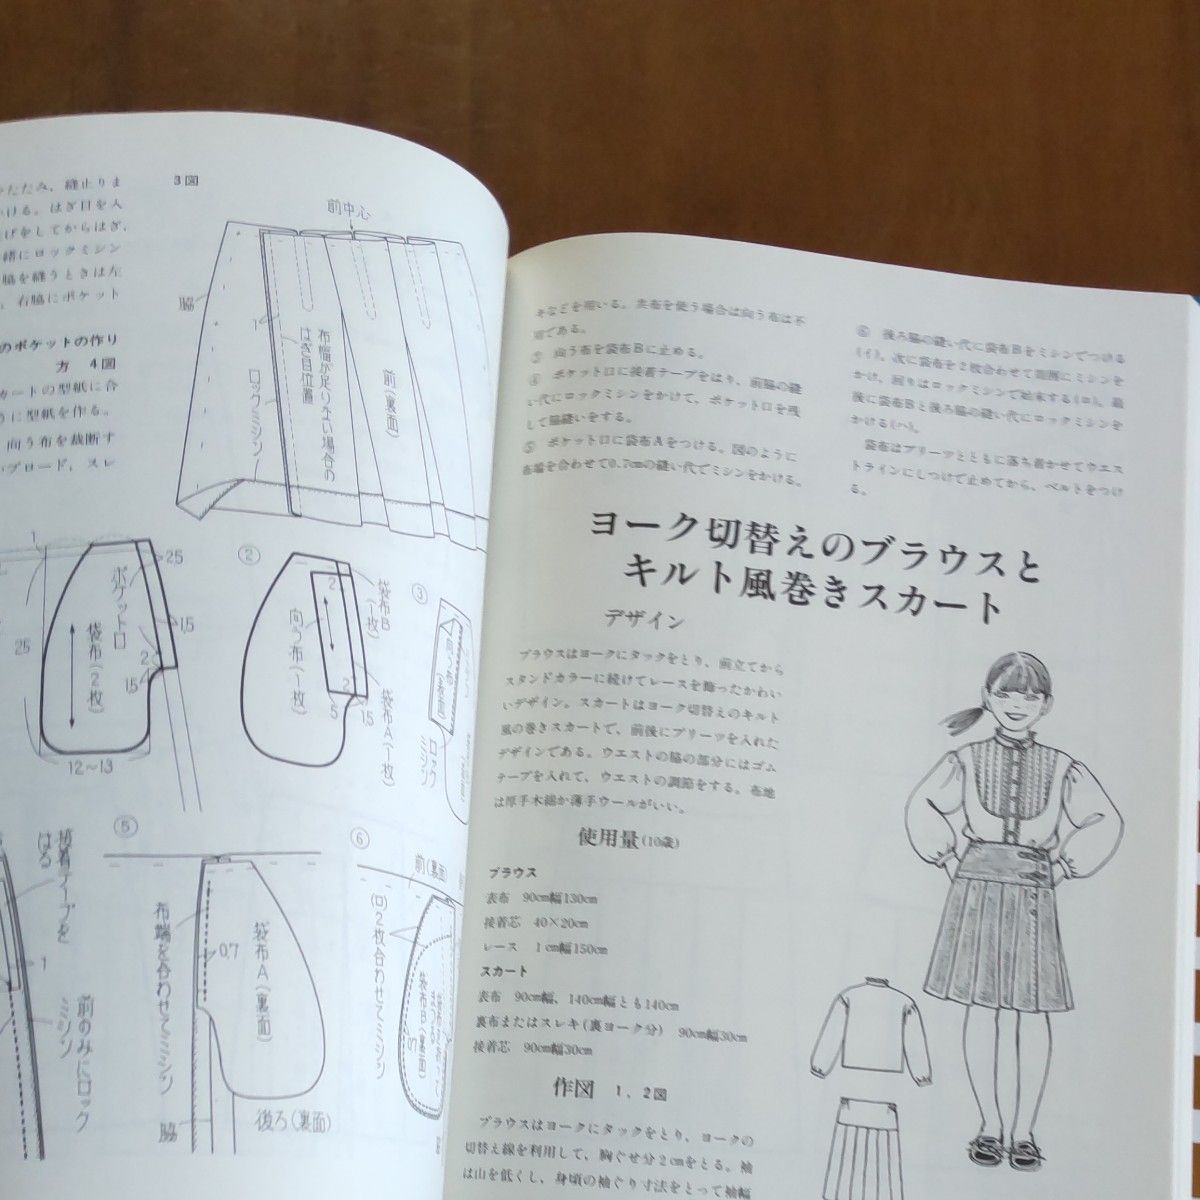 たたみ、縫止りま
ける。はぎ目を入
げをしてからはぎ、
緒にロックミシン
脇を縫うときは左
、右脇にポケット
のポケットの作り
方 4図
カートの型紙に合
うに型紙を作る。
向う布を裁断す
ブロード、スレ
3図
前中心
脇
1
布幅が足りない場合の
はぎ目位置
ロックミシン
前(裏面)
1
25
ポケット口
袋布(2枚)
2.5
1.5
2
1.5
12~13
②
2
向う布(1枚)
袋布B
(1枚)
2
1.5
5
袋布A(1枚)
③
ロック
ミシン
接着テープを
はる
1
前のみにロック
ミシン
⑤
布端を合わせてミシン
0.7
袋布A(裏面)
脇
後ろ(裏面)
⑥
前(裏面)
(ロ)2枚合わせてミシン
袋布B(裏面)
0.7
キなどを用いる。共布を使う場合は向う布は不
用である。
③ 向う布を袋布Bに止める。
④ ポケット口に接着テープをはり、前脇の縫
い代にロックミシンをかけて、ポケット口を残
して脇縫いをする。
⑤ ポケット口に袋布Aをつける。図のように
布端を合わせて0.7cmの縫い代でミシンをかける。
⑥ 後ろ脇の縫い代に袋布Bをミシンでつける
(イ)。次に袋布を2枚合わせて周囲にミシンを
かけ、回りはロックミシンで始末する(ロ)。最
後に袋布Bと後ろ脇の縫い代にロックミシンを
かける(ハ)。
袋布はプリーツとともに落ち着かせてウエス
トラインにしつけで止めてから、ベルトをつけ
る。
ヨーク切替えのブラウスと
キルト風巻きスカート
デザイン
ブラウスはヨークにタックをとり、前立てから
スタンドカラーに続けてレースを飾ったかわい
いデザイン。スカートはヨーク切替えのキルト
風の巻きスカートで、前後にプリーツを入れた
デザインである。ウエストの脇の部分にはゴム
テープを入れて、ウエストの調節をする。布地
は厚手木綿か薄手ウールがいい。
使用量(10歳)
ブラウス
表布 90cm幅130cm
接着芯 40×20cm
レース 1cm幅150cm
スカート
表布 90cm幅、140cm幅とも140cm
裏布またはスレキ(裏ヨーク分) 90cm幅30cm
接着芯 90cm幅30cm
作図 1、2図
ブラウスはヨークにタックをとり、ヨークの
切替え線を利用して、胸ぐせ分2cmをとる。袖
は山を低くし、身頃の袖ぐり寸法をとって袖幅